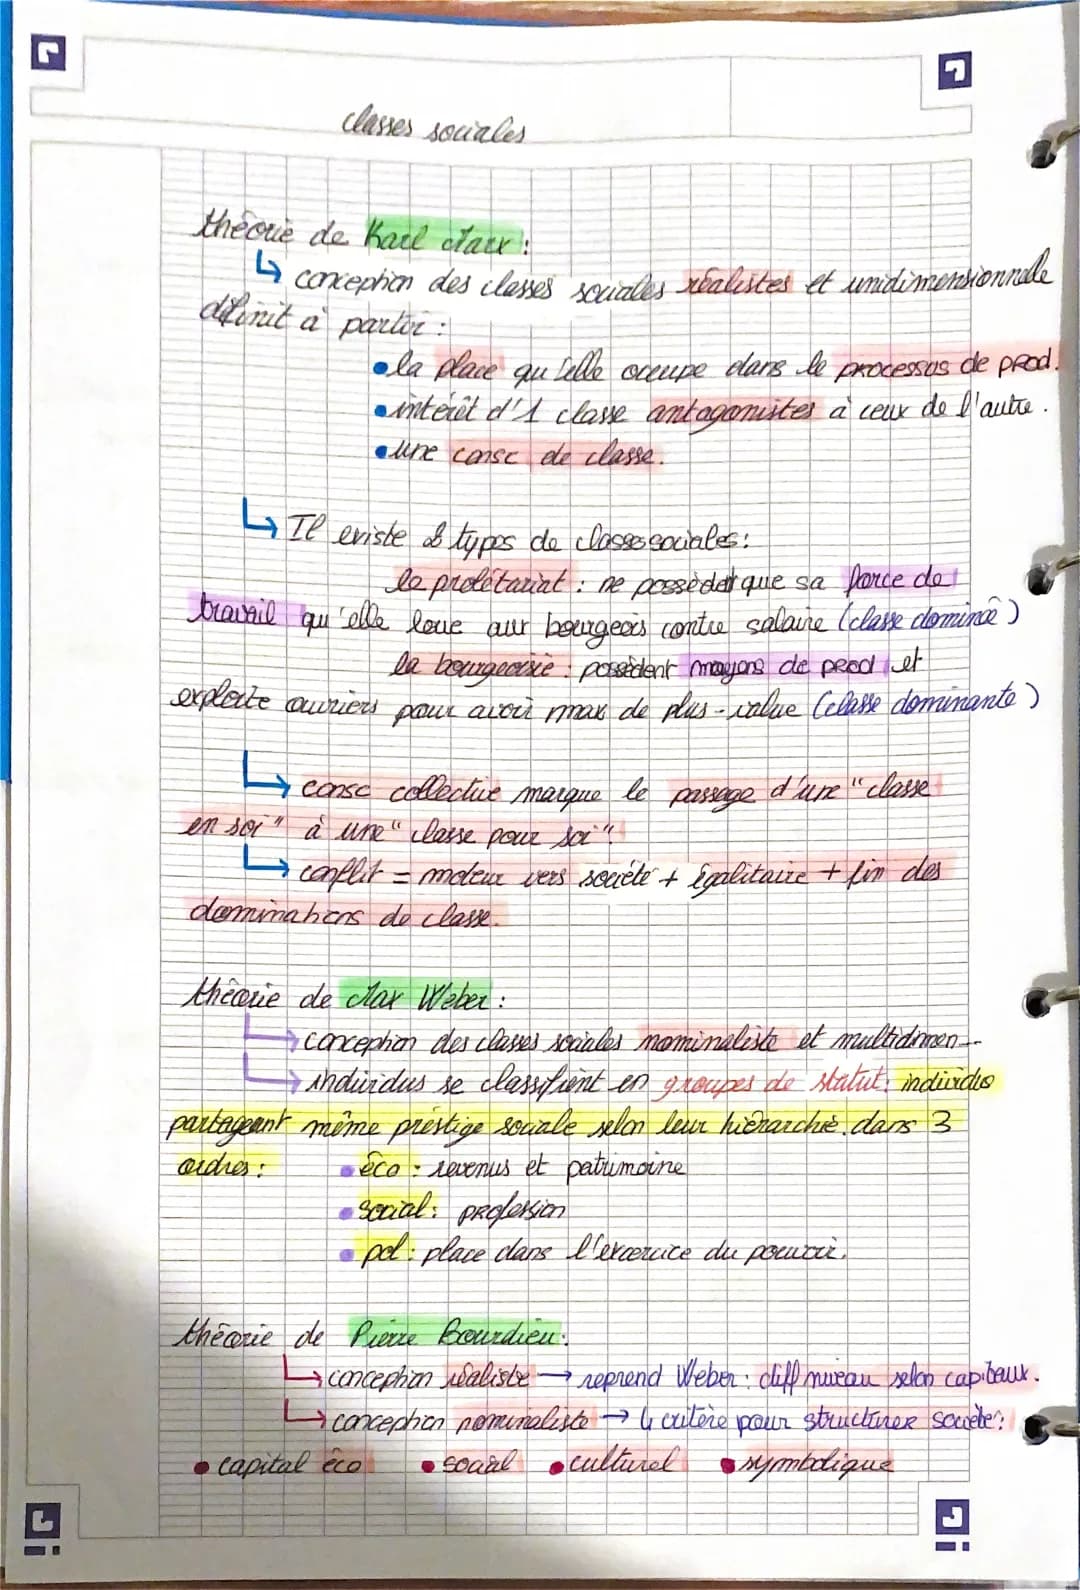 classes sociales
théorie de Karl Marx :
↳ conception des classes sociales réalistes et unidimensionnelle
définit à partir :
• la place qu'elle occupe dans le processus de prod.
• intérêt d'1 classe antagonistes à ceux de l'autre.
• une consc de classe.
↳ Il existe 2 types de classes sociales :
le prolétariat : ne possèdent que sa force de
travail qu'elle loue aux bourgeois contre salaire (classe dominée)
la bourgeoisie : possèdent moyens de prod et
exploite ouvriers pour avoir max de plus-value (classe dominante)
↳ consc collective marque le passage d'une "classe
en soi" à une "classe pour soi".
↳ conflit = moteur vers société + égalitaire + fin des
dominations de classe.
théorie de Max Weber :
↳ conception des classes sociales nominaliste et multidimen...
↳ individus se classifient en groupes de statut : individio
partageant même prestige sociale selon leur hiérarchie dans 3
ordres :
• éco : revenus et patrimoine
• social : profession
• pol : place dans l'excercice du pouvoir.
théorie de Pierre Bourdieu :
↳ conception réaliste → reprend Weber : diff niveau selon capitaux.
↳ conception nominaliste → 4 critère pour structurer société :
• capital éco • social • culturel • symbolique